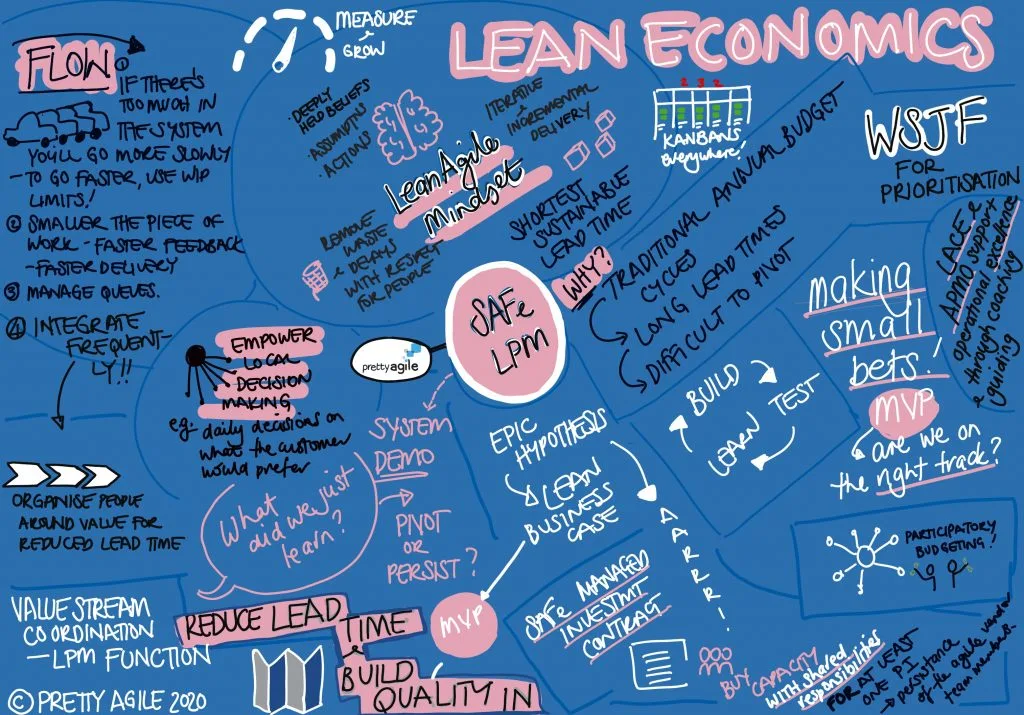 LEAN ECONOMICS
MEASURE
&
GROW
FLOW
① IF THERE'S
TOO MUCH IN
THE SYSTEM
YOU'LL GO MORE SLOWLY
- TO GO FASTER, USE WIP
LIMITS!
② SMALLER THE PIECE OF
WORK - FASTER FEEDBACK
- FASTER DELIVERY
③ MANAGE QUEUES.
④ INTEGRATE
FREQUENT-
LY!!
ORGANISE PEOPLE
AROUND VALUE FOR
REDUCED LEAD TIME
VALUE STREAM
COORDINATION
- LPM FUNCTION
© PRETTY AGILE 2020
· DEEPLY
HELD BELIEFS
· ASSUMPTINS
· ACTIONS
ITERATIVE
&
INCREMENTAL
DELIVERY
LeanAgile
Mindset
REMOVE
WASTE
& DELAYS
WITH RESPECT
FOR PEOPLE
SHORTEST
SUSTAINABLE
LEAD TIME
2 3 2
KANBANS
Everywhere!
WSJF
FOR
PRIORITISATION
SAFe
LPM
prettyagile
WHY?
TRADITIONAL ANNUAL BUDGET
CYCLES
LONG LEAD TIMES
DIFFICULT TO PIVOT
EMPOWER
LOCAL
DECISION
MAKING
eg- daily decisions on
what the customer
would prefer
SYSTEM
DEMO
What did we just
learn?
PIVOT
OR
PERSIST?
REDUCE LEAD
TIME
&
BUILD
QUALITY IN
EPIC
HYPOTHESIS
LEAN
BUSINESS
CASE
MVP
AARRR!
BUILD
TEST
LEARN
making
small
bets!
MVP
are we on
the right track?
LACE &
APMO support
operational excellence
through coaching
& guiding
PARTICIPATORY
BUDGETING!
SAFe MANAGED
INVESTMT
CONTRACT
BUY CAPACITY
WITH shared
responsibilities
FOR AT LEAST
ONE PI
→ persistance
of the agile vendor
team members.